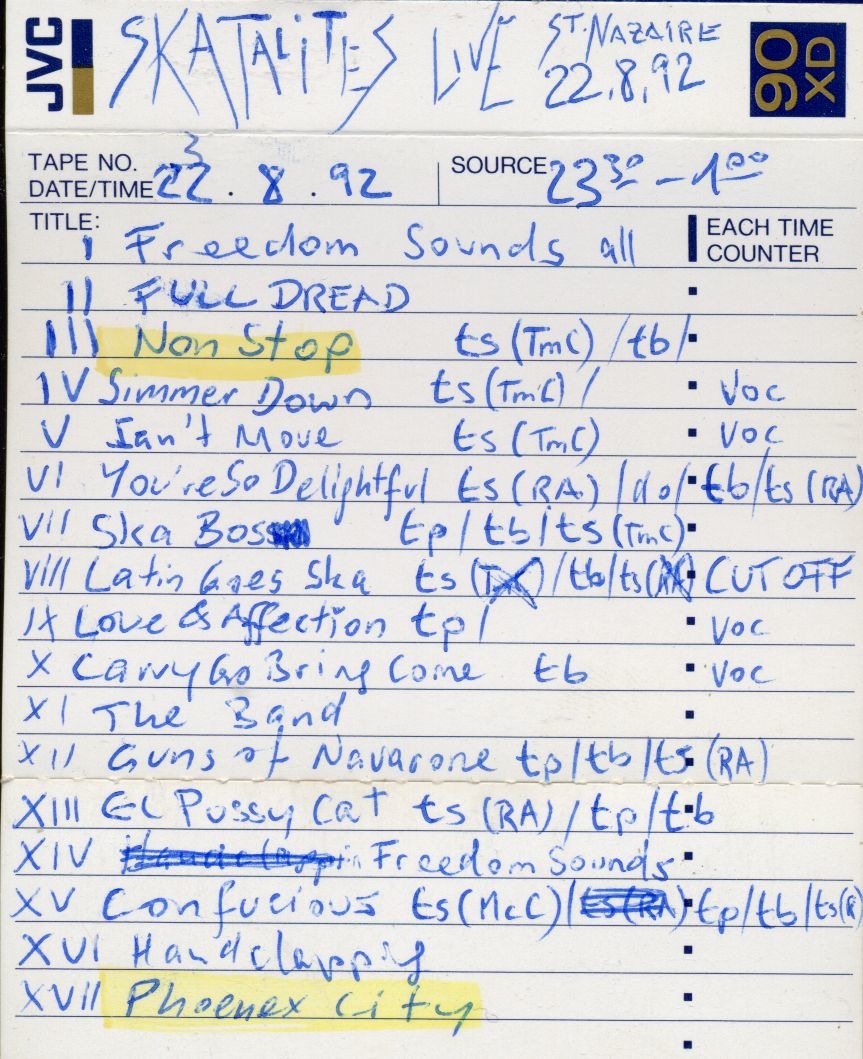 JVC SKATALITES LIVE ST. NAZAIRE 22.8.92 90 XD
TAPE NO. 3
DATE/TIME 22.8.92 SOURCE 23 30 – 1 00
TITLE: EACH TIME COUNTER
I Freedom Sounds all
II FULL DREAD
III Non Stop ts (TMC) / tb /
IV Simmer Down ts (TMC) / Voc
V Ian't Move ts (TMC) Voc
VI You're So Delightful ts (RA) / do / tb / ts (RA)
VII Ska Boss tp / tb / ts (TMC)
VIII Latin Goes Ska ts / tb / ts CUT OFF
IX Love & Affection tp / Voc
X Carry Go Bring Come tb Voc
XI The Band
XII Guns of Navarone tp / tb / ts (RA)
XIII EL Pussy Cat ts (RA) / tp / tb
XIV Handclappin Freedom Sounds
XV Confucious ts (McC) / ts (RA) tp / tb / ts (R
XVI Handclapping
XVII Phoenex City